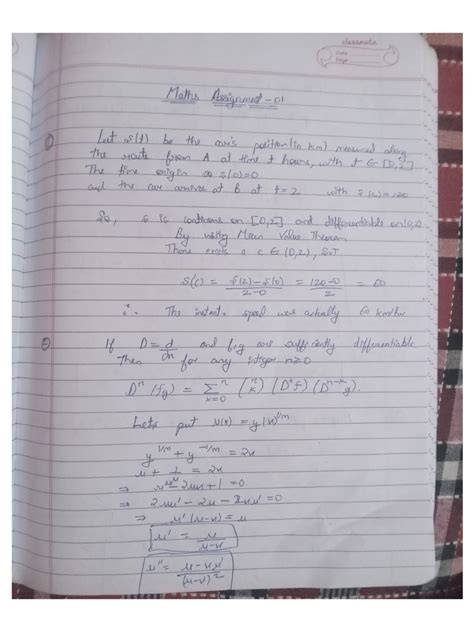 classmate
Date
Page
Maths Assignment - 01
1
Let s(t) be the car's position (in km) measured along
the route from A at time t hours, with t ∈ [0,2]
The time origin so s(0)=0
and the car arrives at B at t = 2 with s(2)=120
So, s is continous on [0,2] and differentiable on (0,2)
By using Mean Value Theorem
There exists a c ∈ (0,2), S.T
s'(c) = s(2)-s(0) / 2-0 = 120-0 / 2 = 60
∴ The instant. speed was actually 60 km/hr
2
If D = d/dx and f,g are sufficiently differentiable
then for any integer n≥0
Dⁿ (fg) = Σ k=0 n (n k) (Dᵏf) (Dⁿ⁻ᵏg).
Let's put u(x) = y(x)^1/m
y^1/m + y^-1/m = 2x
u + 1/u = 2x
⇒ u² - 2ux + 1 = 0
⇒ 2uu' - 2u - 2xu' = 0
⇒ u' (u-x) = u
u' = u / u-x
u'' = u - xu' / (u-x)²